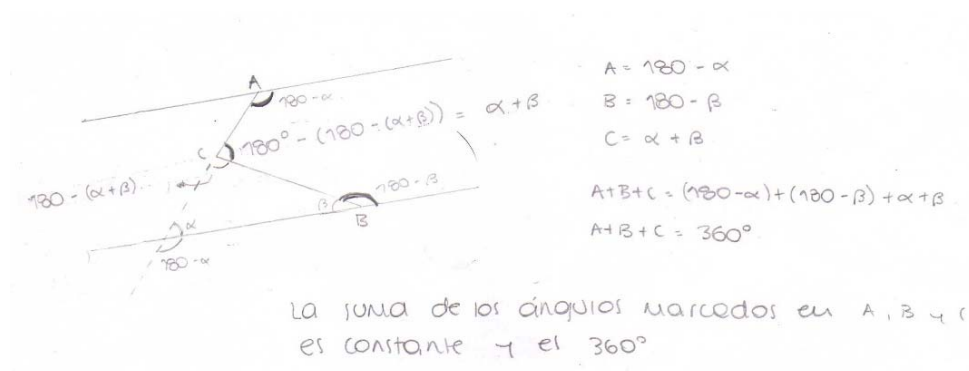 A
180-α
A = 180 - α
B = 180 - β
C = α + β
C
180° - (180 - (α+β)) = α + β
180 - (α+β)
180-β
β
B
α
180-α
A+B+C = (180-α)+(180-β)+α+β
A+B+C = 360°
La suma de los ángulos marcados en A, B y C
es constante y es 360°